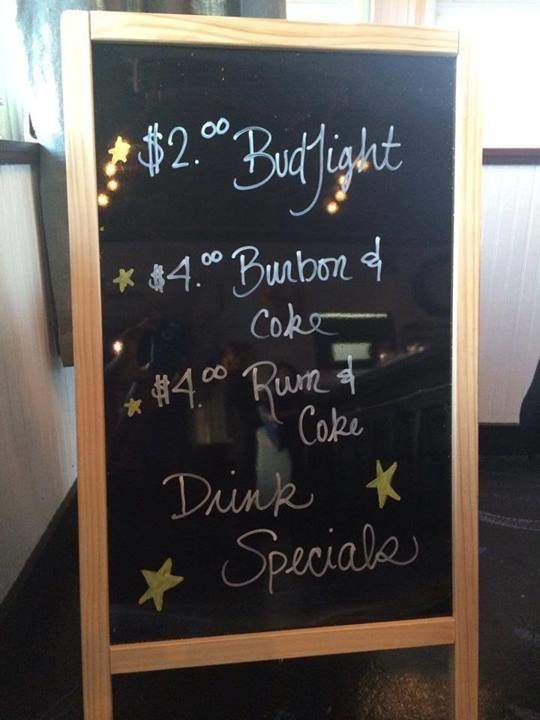 $2.00 Bud Light
$4.00 Burbon &
Coke
$4.00 Rum &
Coke
Drink
Specials